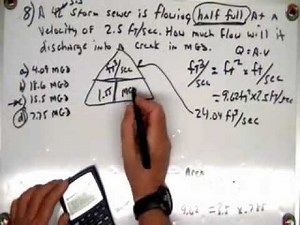 8) A 42" Storm sewer is flowing half full At a
velocity of 2.5 ft/sec. How much flow will it
discharge into A creek in MGD.
Q = A.V
a) 4.09 MGD
b) 18.6 MGD
c) 15.5 MGD
d) 7.75 MGD
ft³/sec
1.55 MG
ft³/sec = ft² × ft/sec
= 9.62 ft² × 2.5 ft/sec
24.04 ft³/sec
Area
9.62 = 3.5 × .785